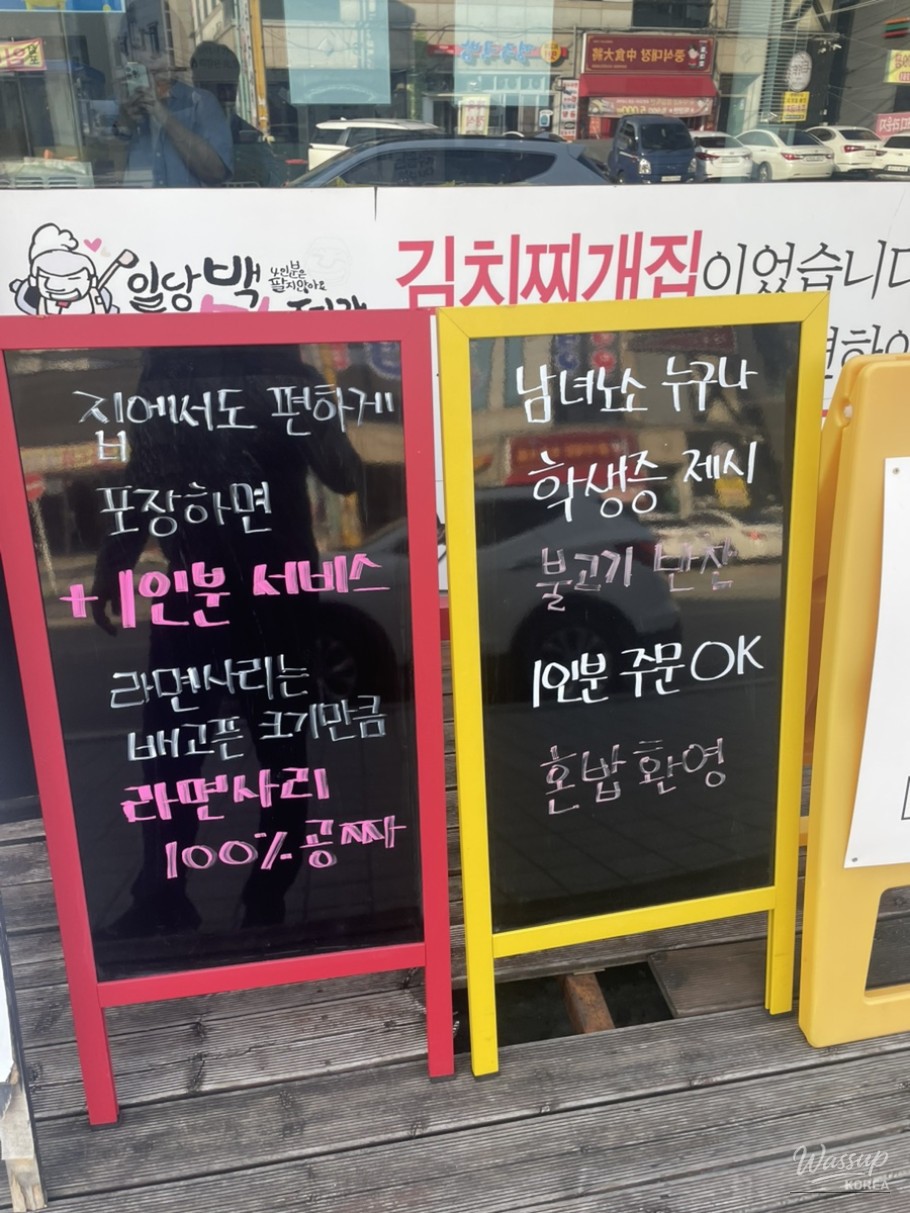 일당백
4인분은
팔지않아요
김치찌개집이었습니다
집에서도 편하게
포장하면
+1인분 서비스
라면사리는
배고픈 크기만큼
라면사리
100% 공짜
남녀노소 누구나
학생증 제시
불고기 반찬
1인분 주문 OK
혼밥 환영
Wassup
KOREA